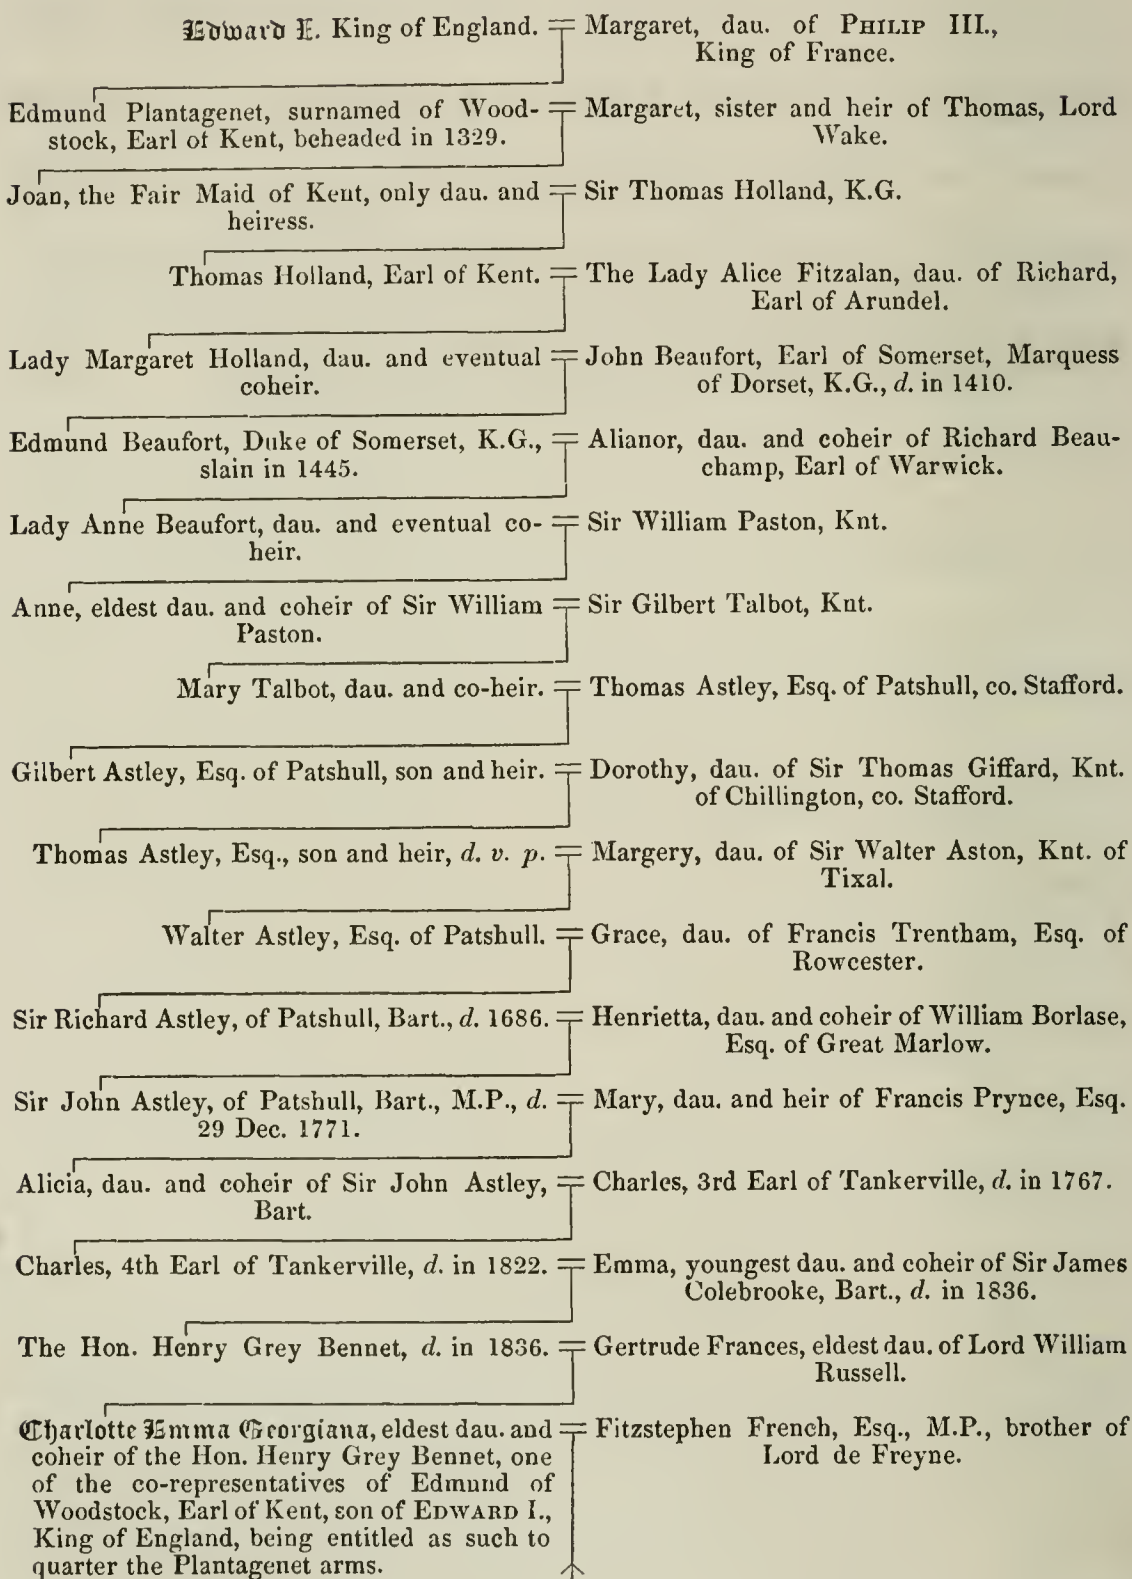 Edward I. King of England. = Margaret, dau. of PHILIP III.,
King of France.
Edmund Plantagenet, surnamed of Wood- = Margaret, sister and heir of Thomas, Lord
stock, Earl of Kent, beheaded in 1329. Wake.
Joan, the Fair Maid of Kent, only dau. and = Sir Thomas Holland, K.G.
heiress.
Thomas Holland, Earl of Kent. = The Lady Alice Fitzalan, dau. of Richard,
Earl of Arundel.
Lady Margaret Holland, dau. and eventual = John Beaufort, Earl of Somerset, Marquess
coheir. of Dorset, K.G., d. in 1410.
Edmund Beaufort, Duke of Somerset, K.G., = Alianor, dau. and coheir of Richard Beau-
slain in 1445. champ, Earl of Warwick.
Lady Anne Beaufort, dau. and eventual co- = Sir William Paston, Knt.
heir.
Anne, eldest dau. and coheir of Sir William = Sir Gilbert Talbot, Knt.
Paston.
Mary Talbot, dau. and co-heir. = Thomas Astley, Esq. of Patshull, co. Stafford.
Gilbert Astley, Esq. of Patshull, son and heir. = Dorothy, dau. of Sir Thomas Giffard, Knt.
of Chillington, co. Stafford.
Thomas Astley, Esq., son and heir, d. v. p. = Margery, dau. of Sir Walter Aston, Knt. of
Tixal.
Walter Astley, Esq. of Patshull. = Grace, dau. of Francis Trentham, Esq. of
Rowcester.
Sir Richard Astley, of Patshull, Bart., d. 1686. = Henrietta, dau. and coheir of William Borlase,
Esq. of Great Marlow.
Sir John Astley, of Patshull, Bart., M.P., d. = Mary, dau. and heir of Francis Prynce, Esq.
29 Dec. 1771.
Alicia, dau. and coheir of Sir John Astley, = Charles, 3rd Earl of Tankerville, d. in 1767.
Bart.
Charles, 4th Earl of Tankerville, d. in 1822. = Emma, youngest dau. and coheir of Sir James
Colebrooke, Bart., d. in 1836.
The Hon. Henry Grey Bennet, d. in 1836. = Gertrude Frances, eldest dau. of Lord William
Russell.
Charlotte Emma Georgiana, eldest dau. and = Fitzstephen French, Esq., M.P., brother of
coheir of the Hon. Henry Grey Bennet, one Lord de Freyne.
of the co-representatives of Edmund of
Woodstock, Earl of Kent, son of EDWARD I.,
King of England, being entitled as such to
quarter the Plantagenet arms.